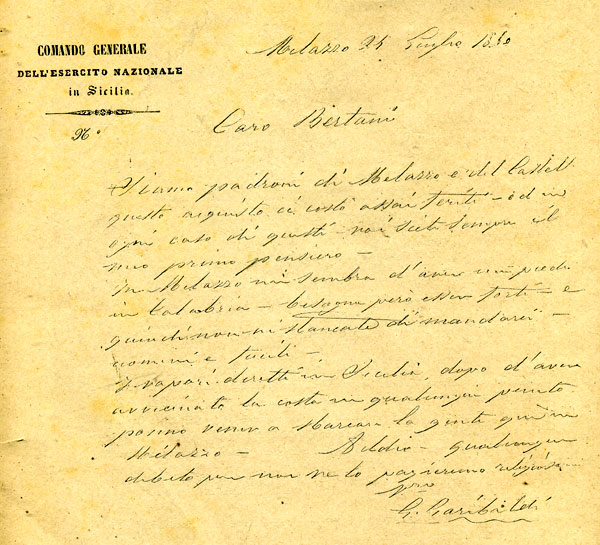 COMANDO GENERALE
DELL'ESERCITO NAZIONALE
in Sicilia.
N.º
Melazzo 25 Luglio 1860
Caro Bertani
Siamo padroni di Melazzo e del Castell
questo aquisto ci costò assai feriti – ed in
ogni caso di questi – voi siete sempre il
mio primo pensiero –
In Melazzo mi sembra d'avere un piede
in Calabria – bisogna però esser forti – e
quindi non vi stancate di mandarci –
uomini e fucili –
I vapori diretti in Sicilia, dopo d'avere
avvicinato la costa in qualunque punto
ponno venire a sbarcar la gente qui in
Melazzo – Addio – qualunque
debito per noi ve lo pagheremo religiosa–
Vro
G. Garibaldi